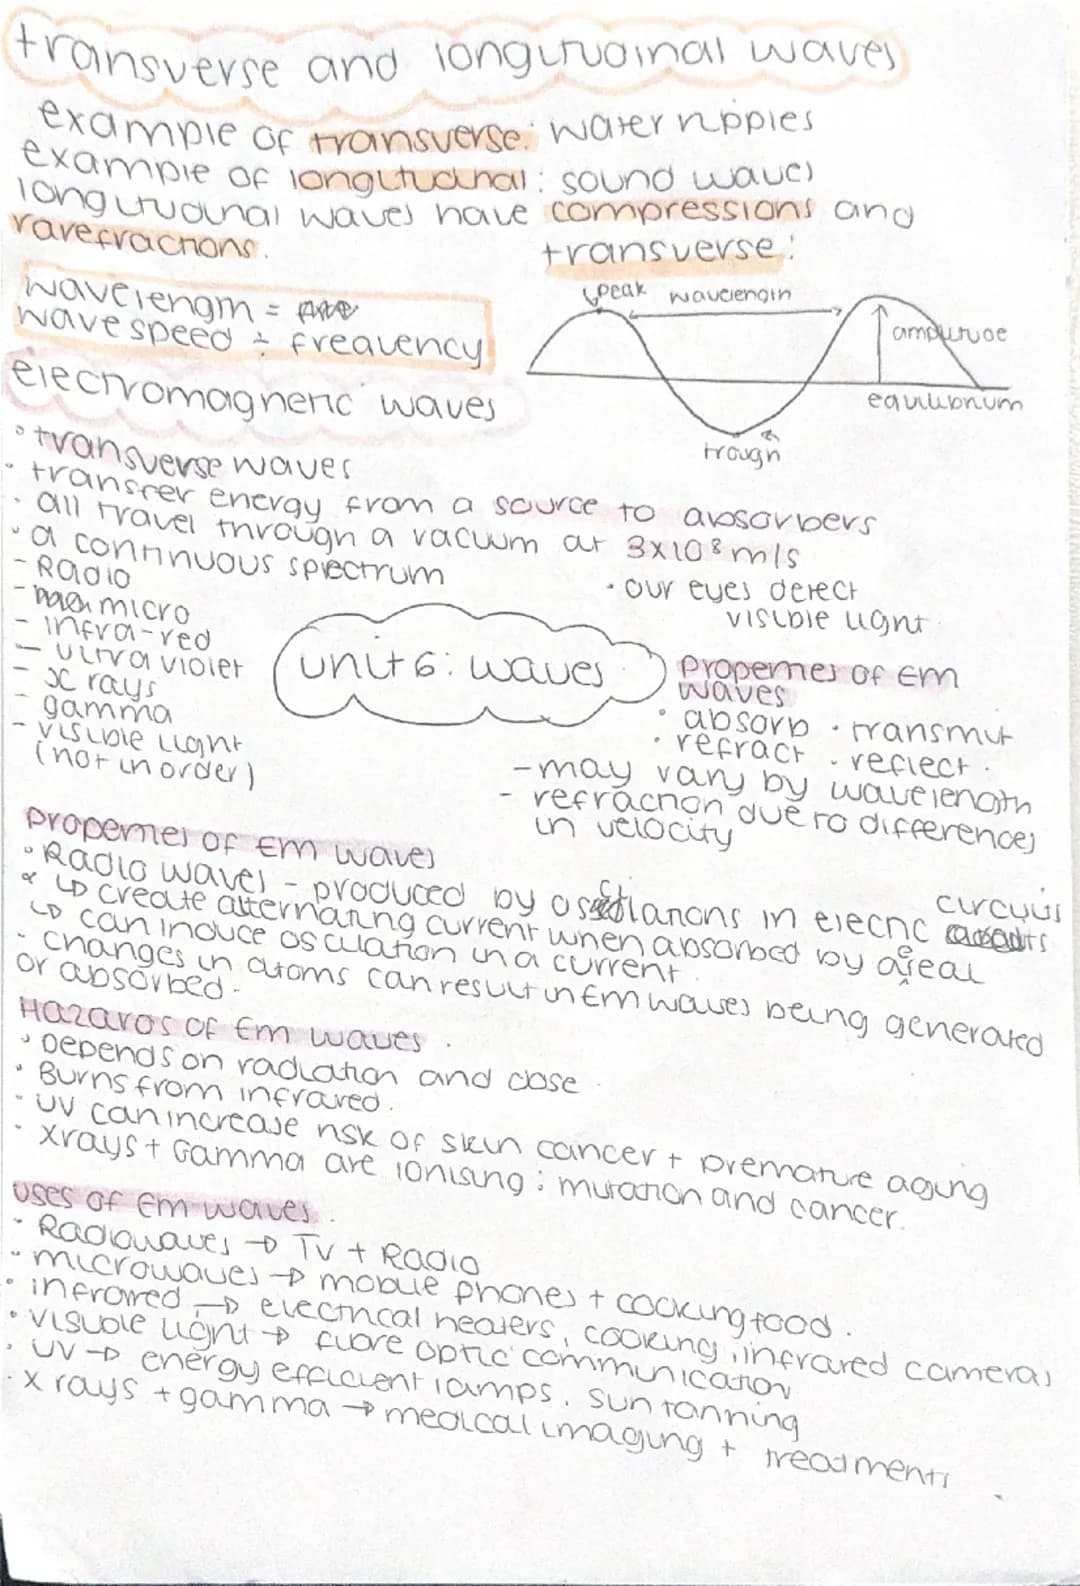 transverse and longitudinal waves
example of transverse: water ripples
example of longitudinal: sound waves
longitudinal waves have compressions and
rarefractions.
transverse:
wavelength =
wave speed ÷ frequency
peak wavelength
amplitude
equilibrium
trough
electromagnetic waves
• transverse waves
• transfer energy from a source to absorbers
• all travel through a vacuum at 3x10⁸ m/s
• a continuous spectrum
- Radio
- micro
- infra-red
- ultra violet
- x rays
- gamma
- visible light
(not in order)
• our eyes detect
visible light
unit 6: waves
Properties of EM
waves
• absorb • transmit
• refract • reflect.
- may vary by wavelength
- refraction due to differences
in velocity
properties of EM waves
• Radio waves - produced by oscillations in electric circuits
↳ create alternating current when absorbed by aereal
↳ can induce oscillation in a current.
• changes in atoms can result in EM waves being generated
or absorbed.
Hazards of Em waves.
• Depends on radiation and dose.
• Burns from infrared.
• UV can increase risk of skin cancer + premature aging
• xrays + Gamma are ionising: mutation and cancer.
uses of Em waves.
• Radiowaves → TV + Radio
• microwaves → mobile phones + cooking food.
• infrared → electrical heaters, cooking, infrared cameras
• visible light → fibre optic communication
• UV → energy efficient lamps, sun tanning
• x rays + gamma → medical imaging + treatments